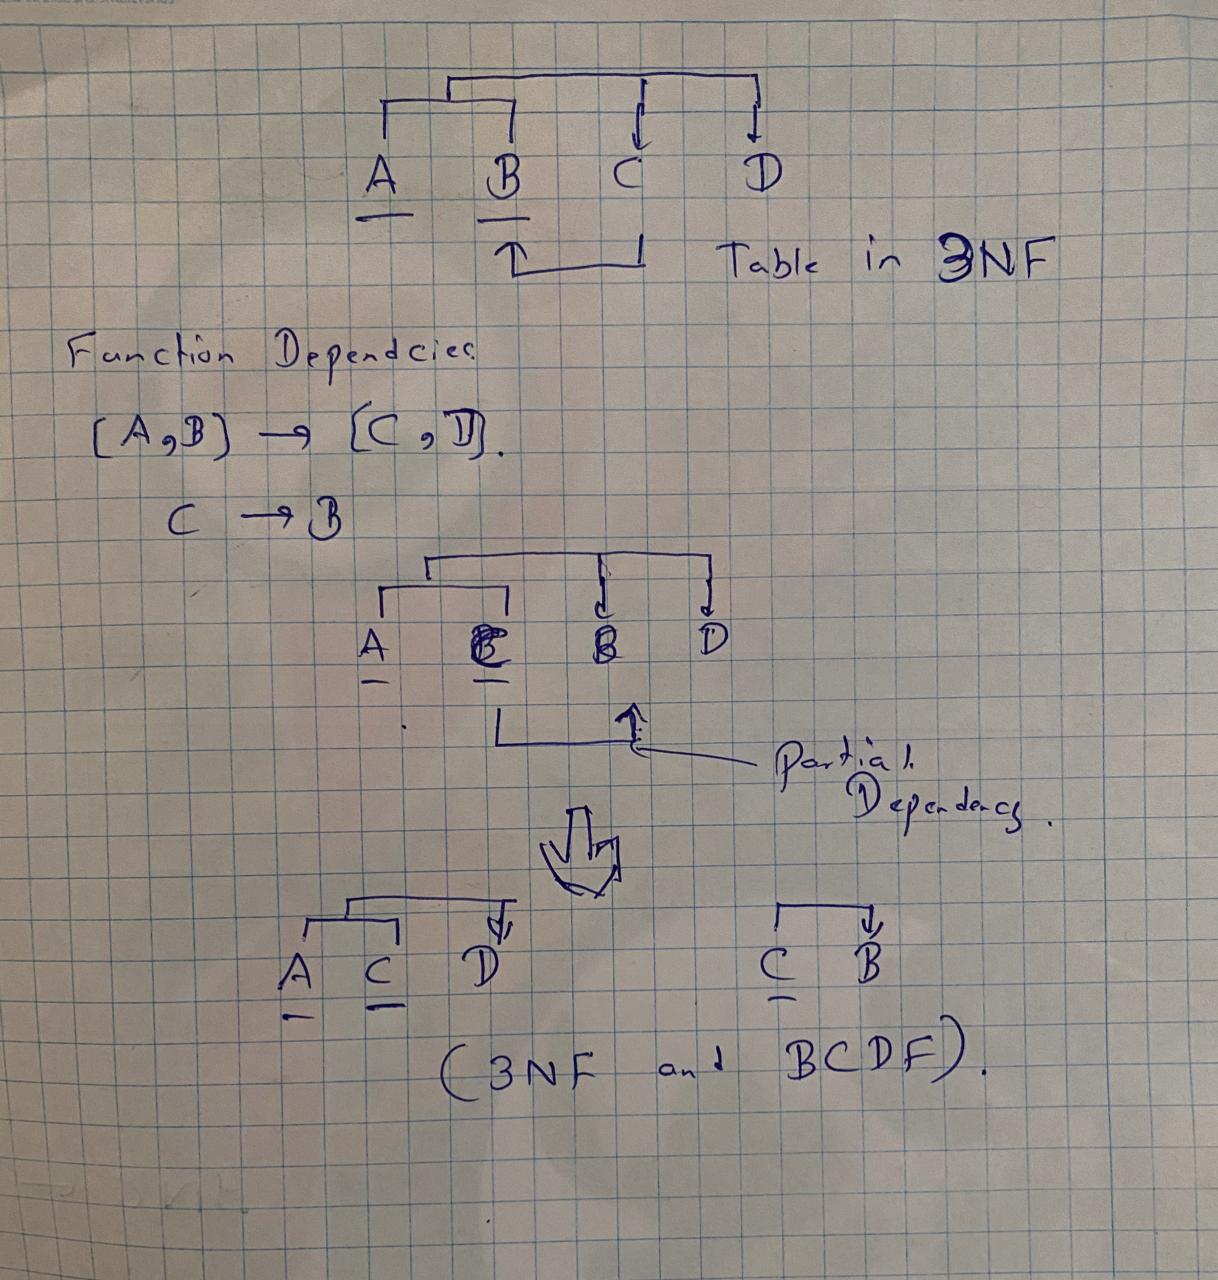 A B C D
Table in 3NF
Function Dependcies
[A,B] → [C,D].
C → B
A C B D
Partial
Dependency.
A C D C B
(3NF and BCDF).